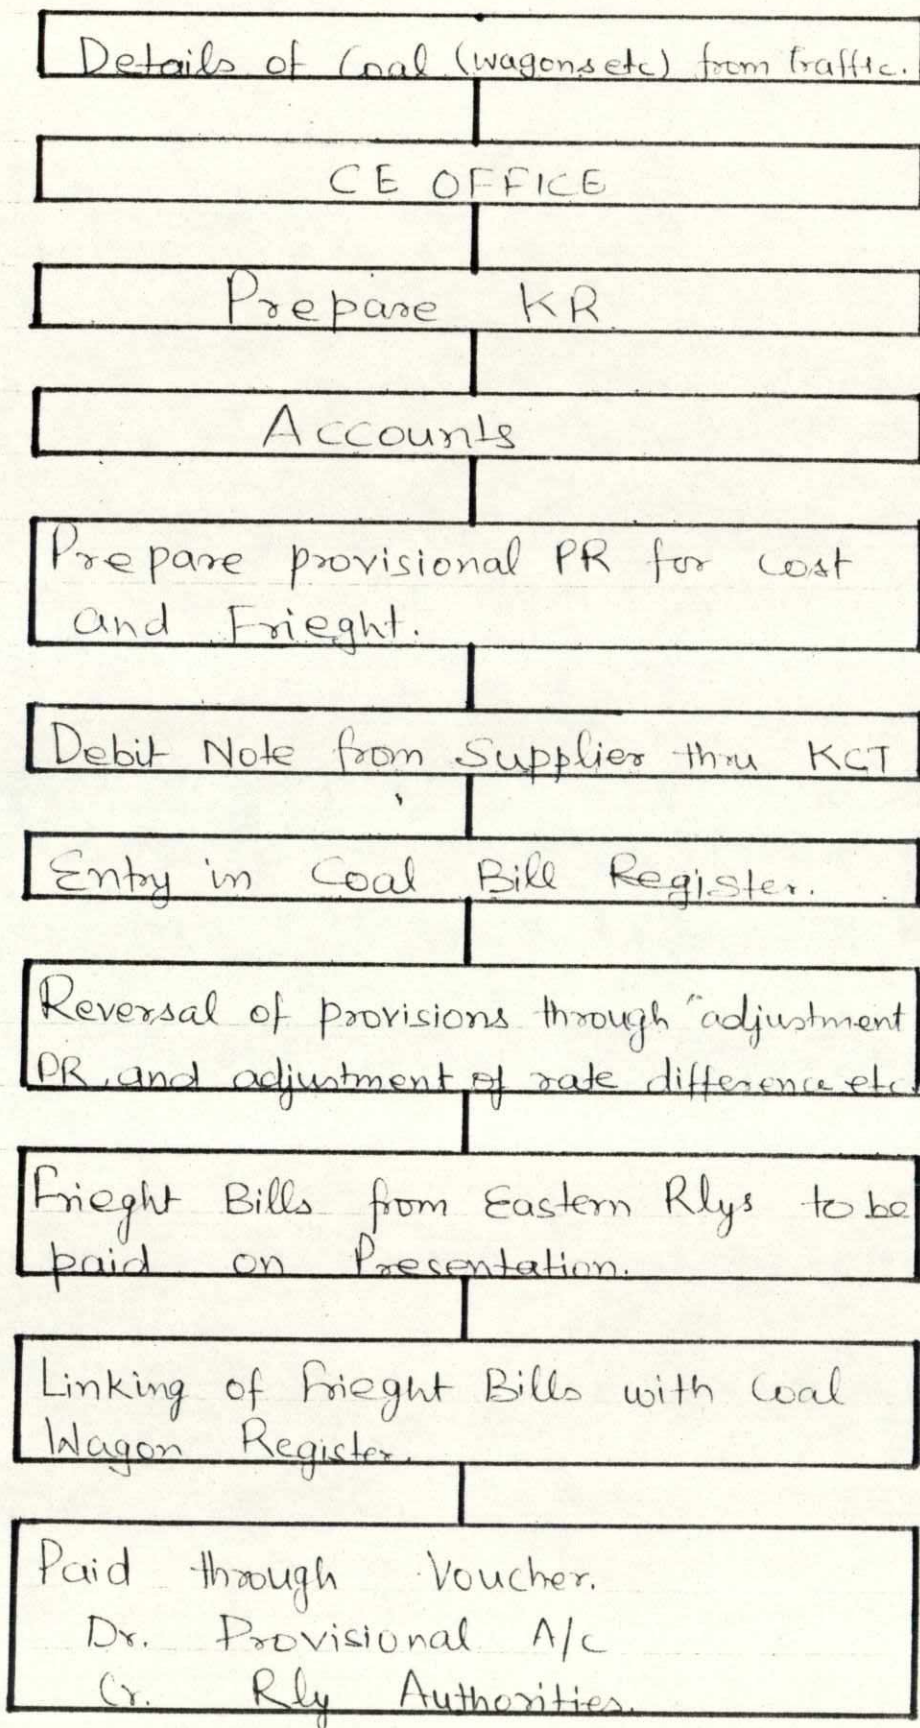 Details of Coal (wagons etc) from Traffic.
CE OFFICE
Prepare KR
Accounts
Prepare provisional PR for Cost
and Frieght.
Debit Note from Supplier thru KCT
Entry in Coal Bill Register.
Reversal of provisions through "adjustment
PR, and adjustment of rate difference etc.
Frieght Bills from Eastern Rlys to be
paid on Presentation.
Linking of Frieght Bills with Coal
Wagon Register.
Paid through Voucher.
Dr. Provisional A/c
Cr. Rly Authorities.